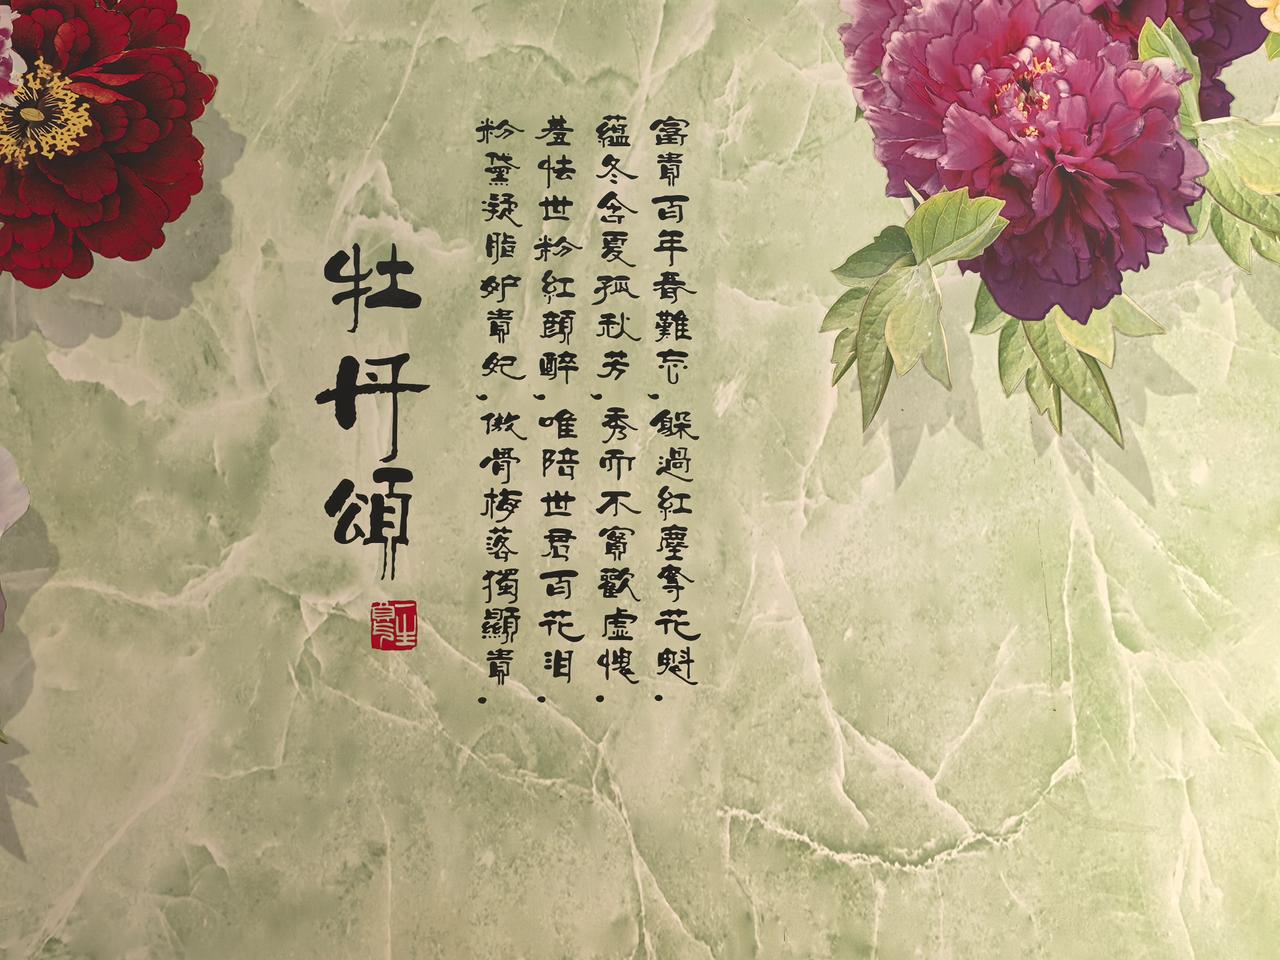 富貴百年春難忘．躲過紅塵奪花魁．
蘊冬含夏孤秋芳．秀而不實歡虛愧．
羞怯世粉紅顏醉．唯陪世君百花泪．
粉黛凝脂妒貴妃．傲骨梅落獨顯貴．
牡丹頌